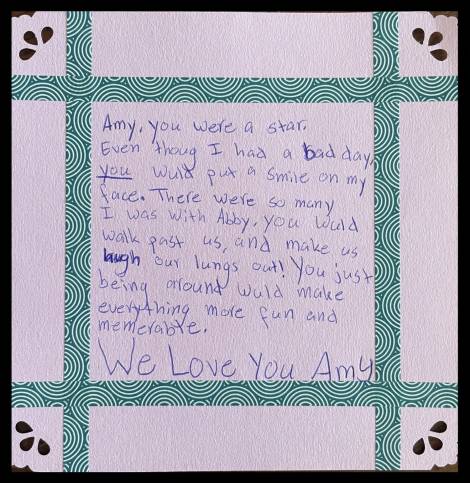 Amy, you were a star.
Even thoug I had a bad day,
you wuld put a smile on my
face. There were so many
I was with Abby, you wuld
walk past us, and make us
laugh our lungs out! You just
being around wuld make
everything more fun and
memerable.
We Love You Amy